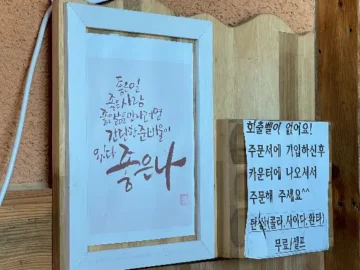 좋은일
좋은사람
좋은날을 만나려면
간단한 준비물이
있다
좋은나
회출벨이 없어요!
주문서에 기입하신후
카운터에 나오셔서
주문해 주세요^^
탄산(콜라, 사이다, 환타)
무료/셀프